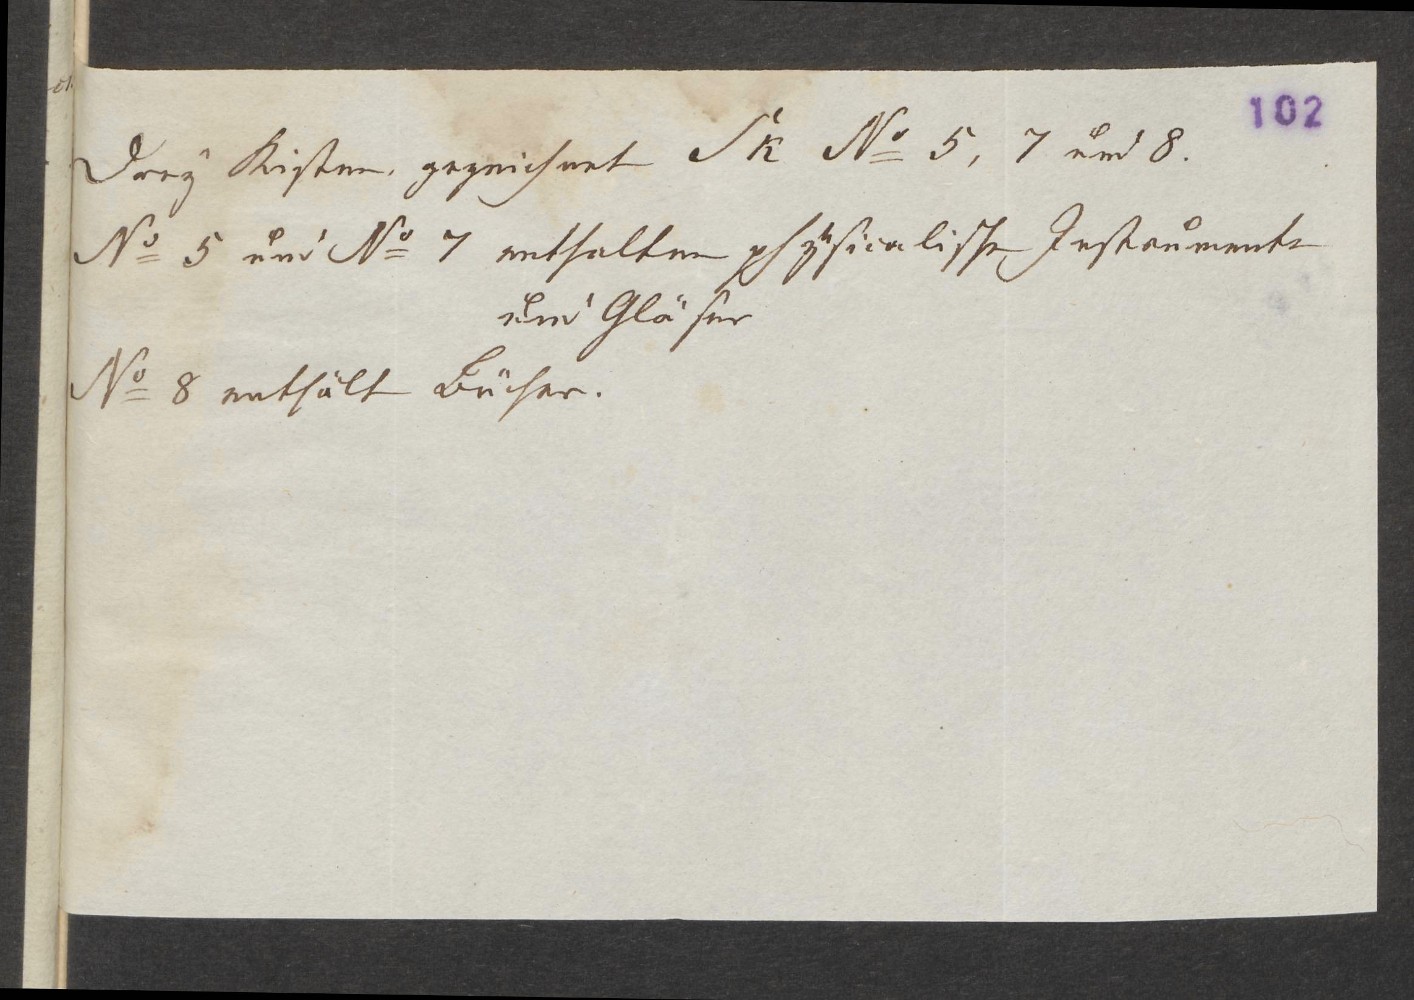 102
Dreÿ Kisten, gezeichnet S k No 5, 7 und 8.
No 5 und No 7 enthalten phÿsicalische Instrumente
und Gläser
No 8 enthält Bücher.